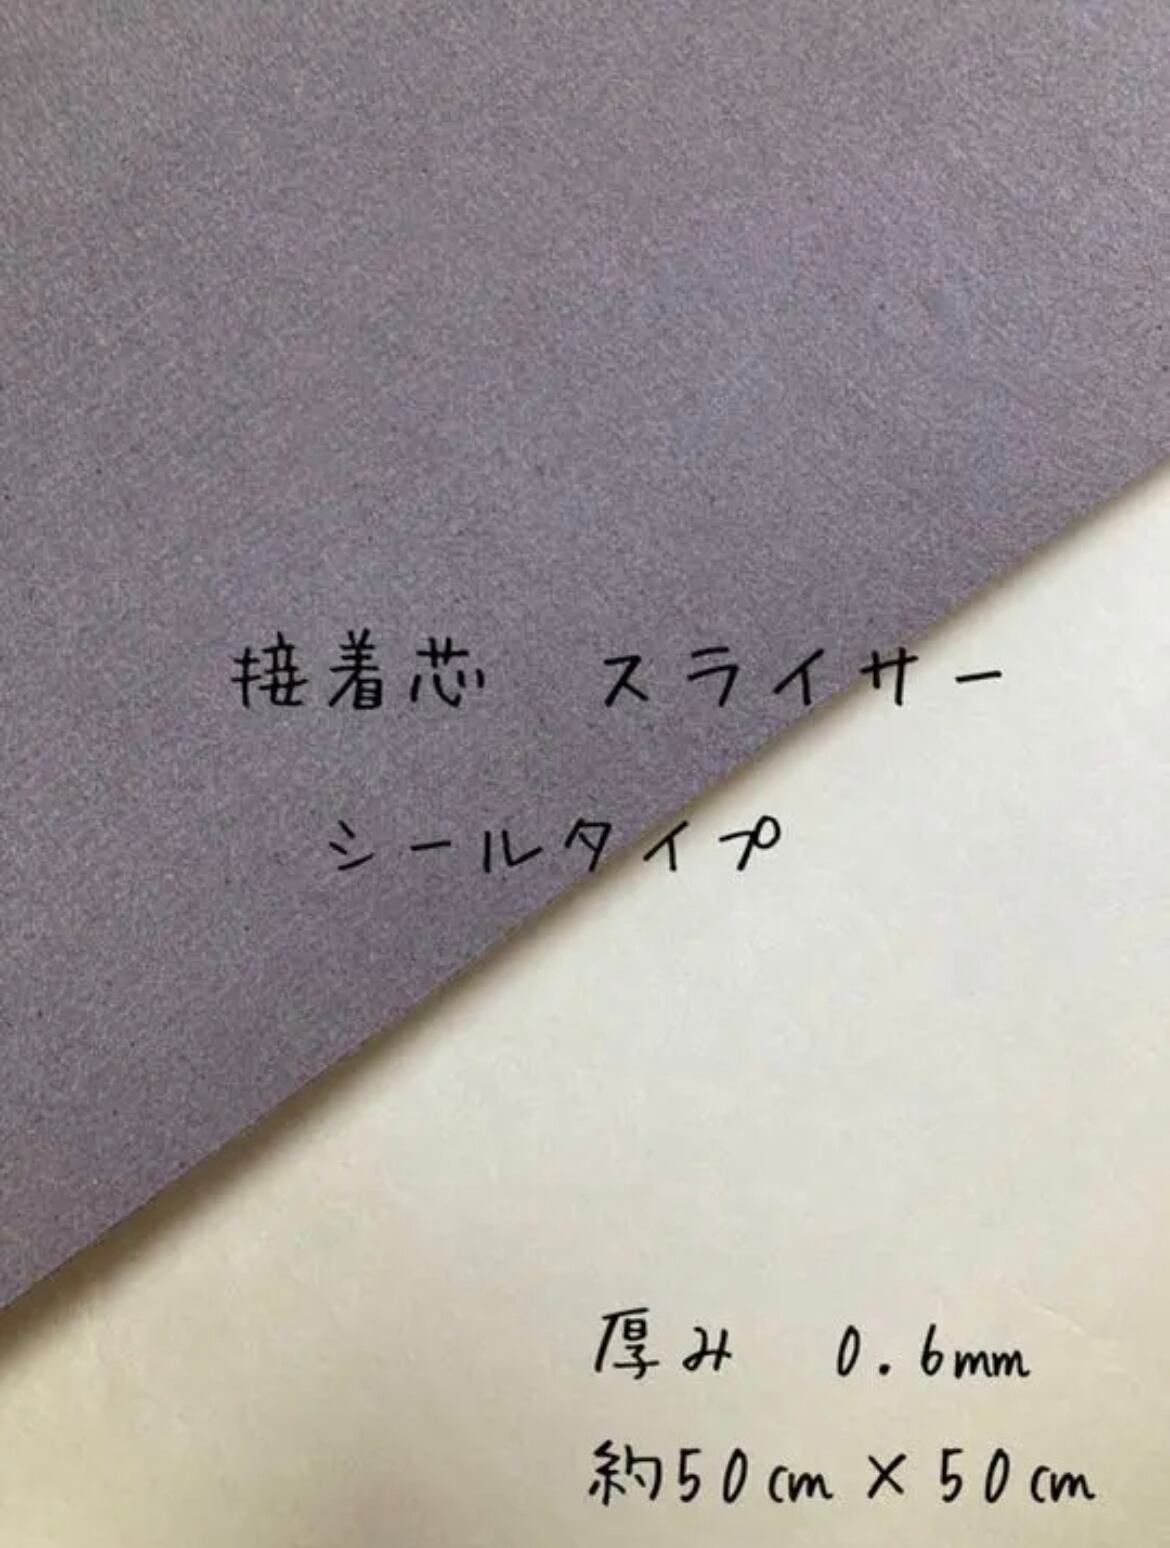 接着芯　スライサー
シールタイプ
厚み　0.6mm
約50cm×50cm